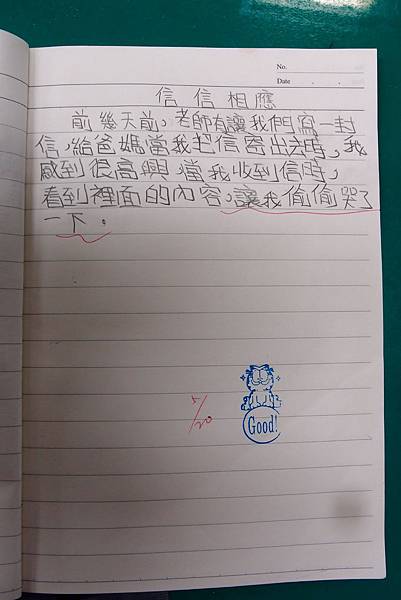 No.
Date . .
信信相應
前幾天前，老師有讓我們寫一封
信，給爸媽當我把信寄出去時，我
感到很高興當我收到信時，
看到裡面的內容，讓我偷偷哭了
一下。
5/20
Good!